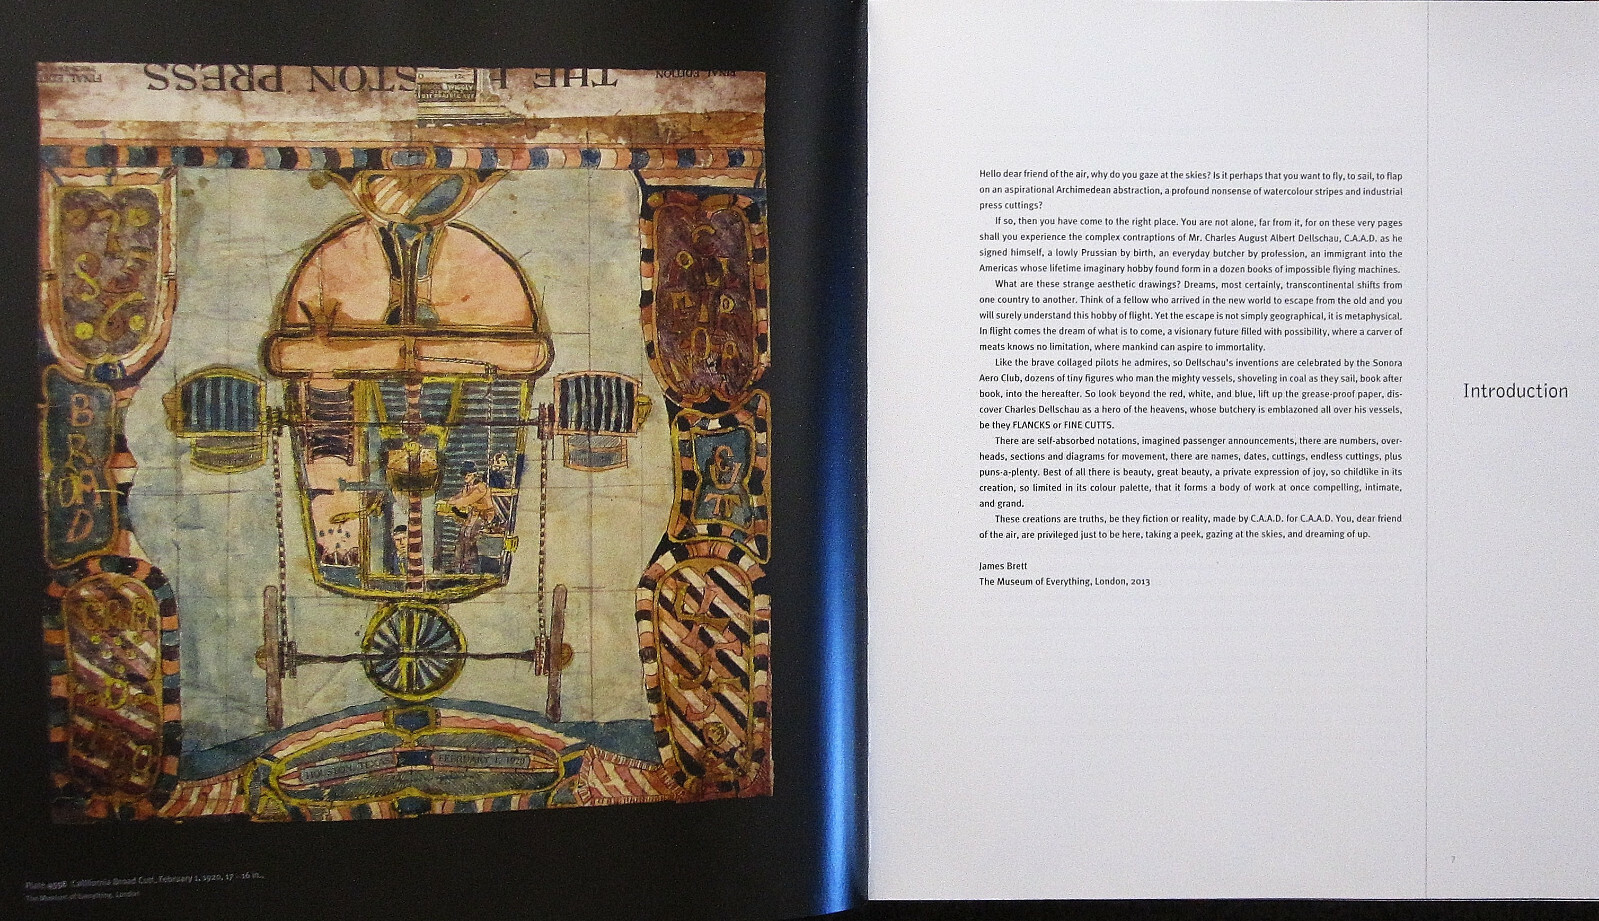 FINAL EDITION
THE STON PRESS
FINAL EDITION
BROAD
CUT
HOUSTON, TEXAS
FEBRUARY 1, 1920
Plate 4556 California Broad Cut, February 1, 1920, 17 × 16 in.
The Museum of Everything, London
Hello dear friend of the air, why do you gaze at the skies? Is it perhaps that you want to fly, to sail, to flap
on an aspirational Archimedean abstraction, a profound nonsense of watercolour stripes and industrial
press cuttings?
If so, then you have come to the right place. You are not alone, far from it, for on these very pages
shall you experience the complex contraptions of Mr. Charles August Albert Dellschau, C.A.A.D. as he
signed himself, a lowly Prussian by birth, an everyday butcher by profession, an immigrant into the
Americas whose lifetime imaginary hobby found form in a dozen books of impossible flying machines.
What are these strange aesthetic drawings? Dreams, most certainly, transcontinental shifts from
one country to another. Think of a fellow who arrived in the new world to escape from the old and you
will surely understand this hobby of flight. Yet the escape is not simply geographical, it is metaphysical.
In flight comes the dream of what is to come, a visionary future filled with possibility, where a carver of
meats knows no limitation, where mankind can aspire to immortality.
Like the brave collaged pilots he admires, so Dellschau's inventions are celebrated by the Sonora
Aero Club, dozens of tiny figures who man the mighty vessels, shoveling in coal as they sail, book after
book, into the hereafter. So look beyond the red, white, and blue, lift up the grease-proof paper, dis-
cover Charles Dellschau as a hero of the heavens, whose butchery is emblazoned all over his vessels,
be they FLANCKS or FINE CUTTS.
There are self-absorbed notations, imagined passenger announcements, there are numbers, over-
heads, sections and diagrams for movement, there are names, dates, cuttings, endless cuttings, plus
puns-a-plenty. Best of all there is beauty, great beauty, a private expression of joy, so childlike in its
creation, so limited in its colour palette, that it forms a body of work at once compelling, intimate,
and grand.
These creations are truths, be they fiction or reality, made by C.A.A.D. for C.A.A.D. You, dear friend
of the air, are privileged just to be here, taking a peek, gazing at the skies, and dreaming of up.
James Brett
The Museum of Everything, London, 2013
Introduction
7